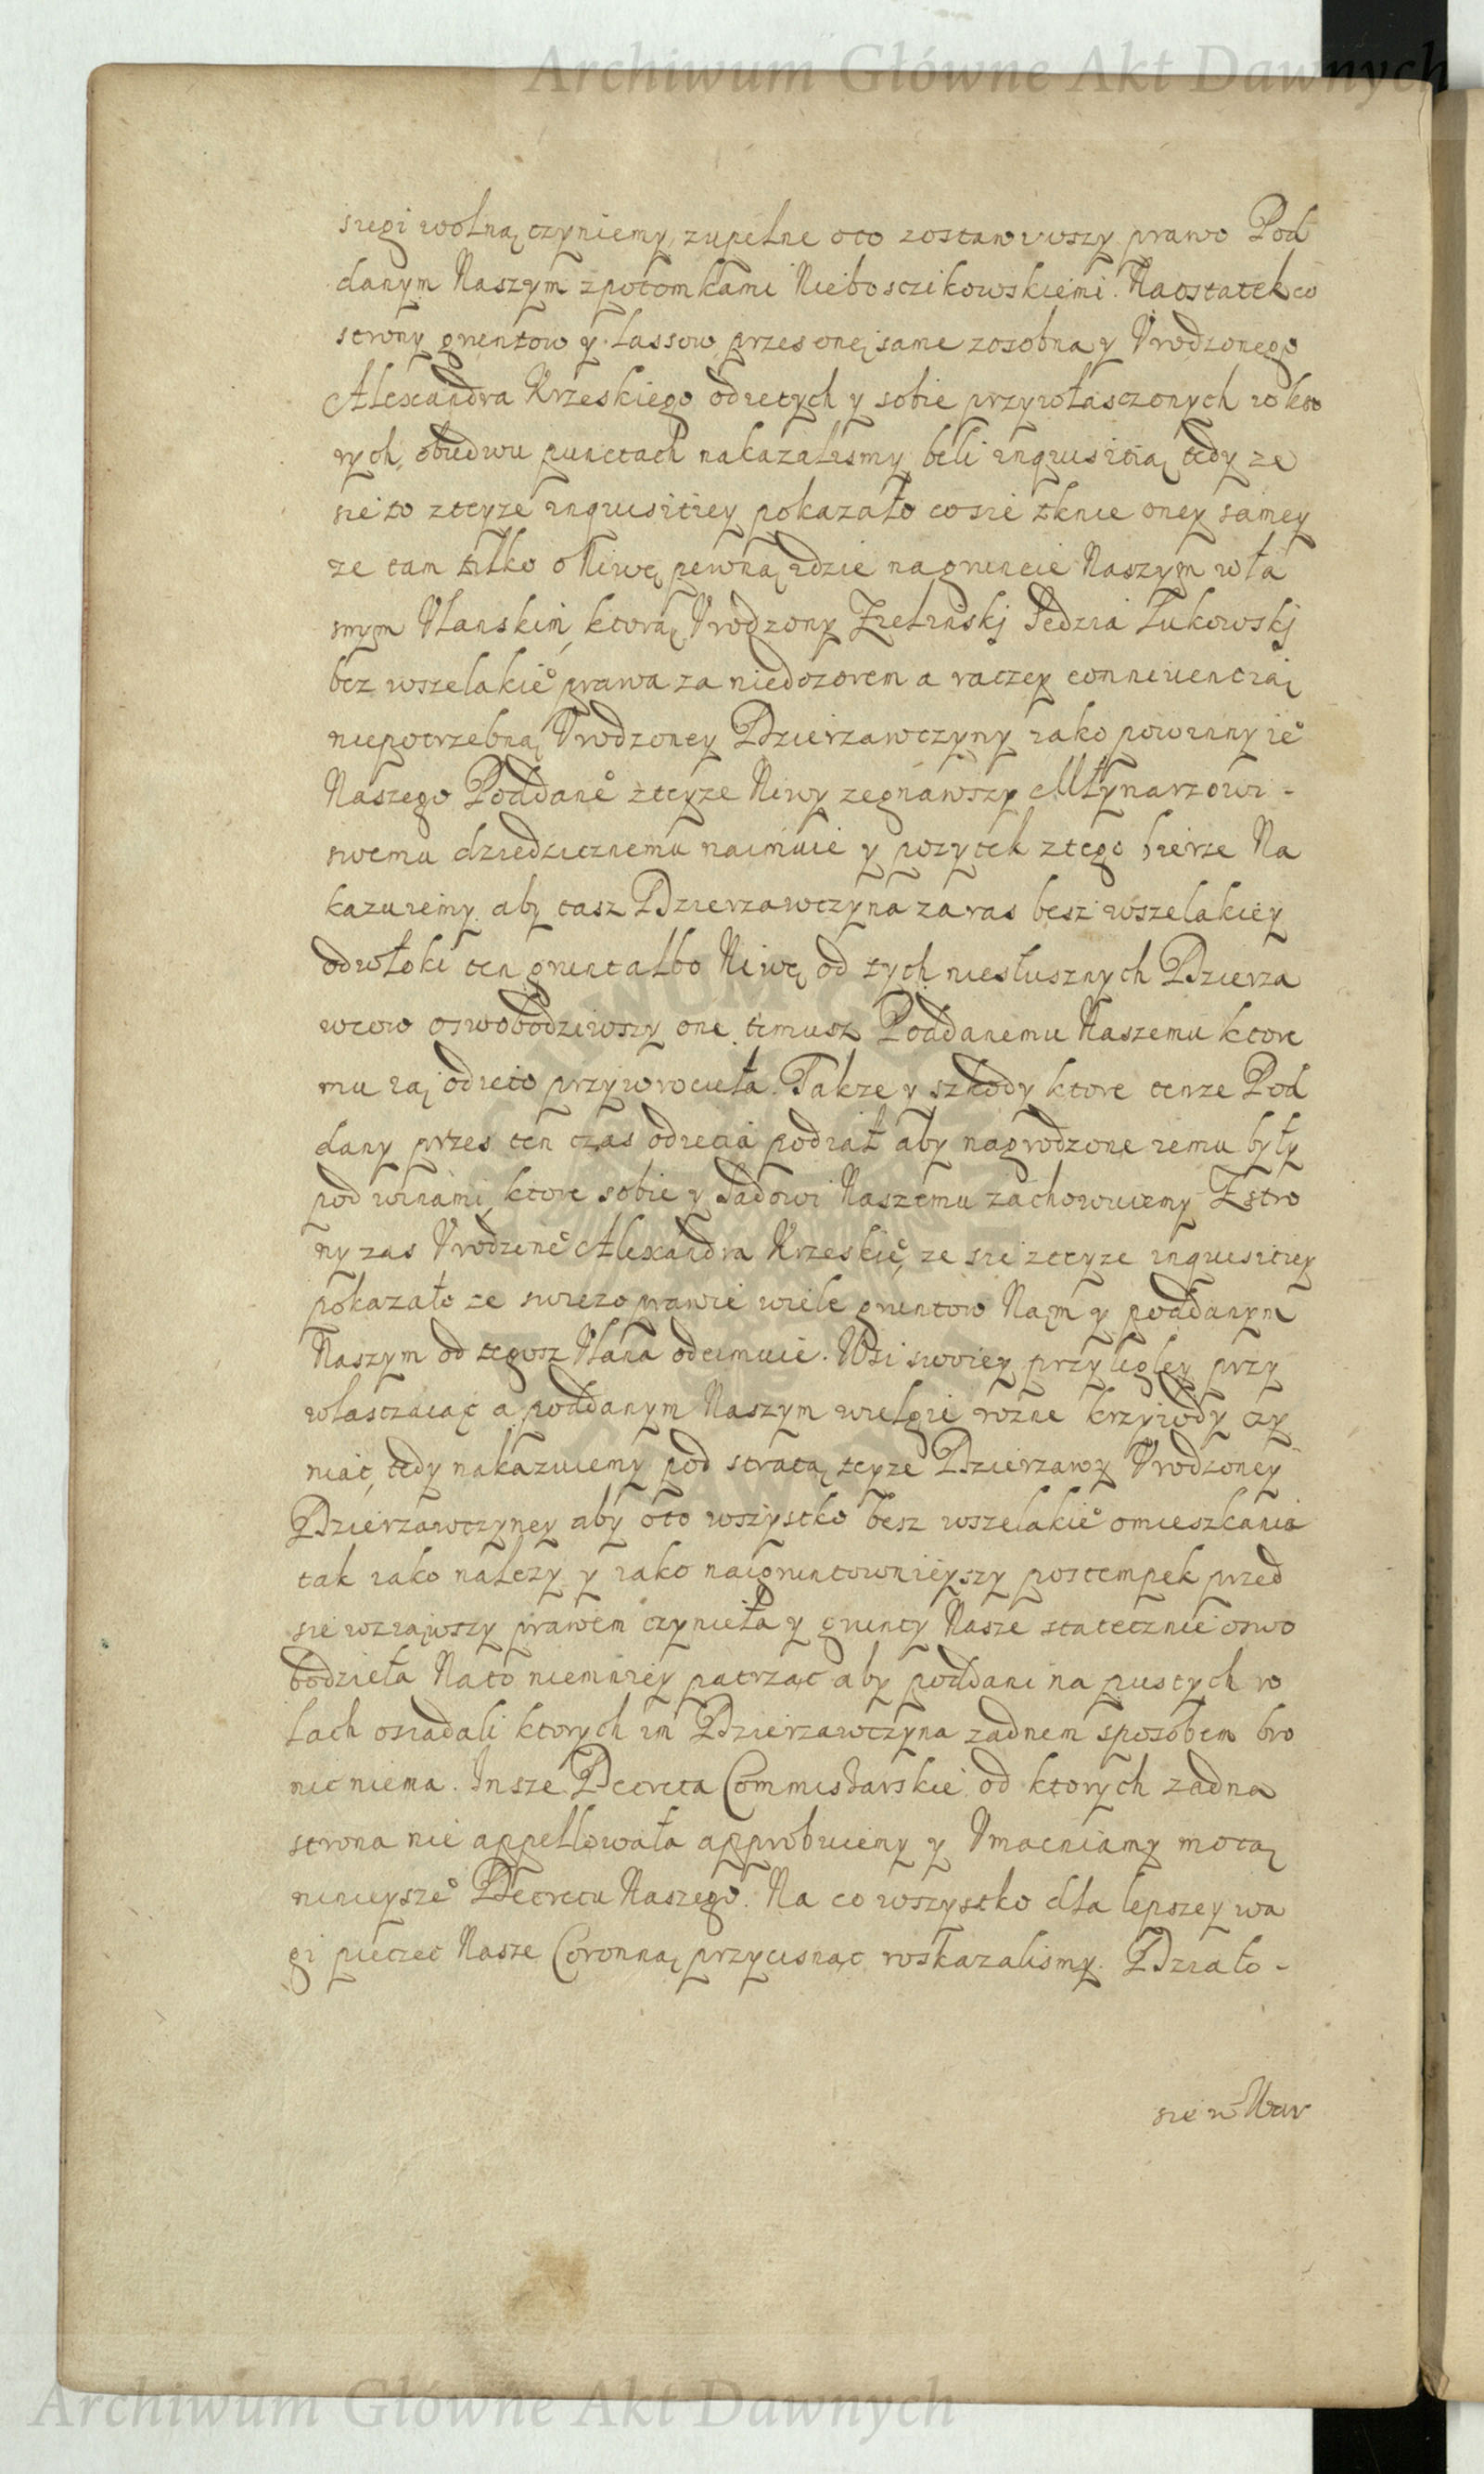 Archiwum Główne Akt Dawnych
sięgi wolną czyniemy, zupełne oto zostawiwszy prawo Pod
danym Naszym zpotomkami Nieboszczikowskiemi. Naostatek co
strony gruntow y lassow przes onę same zosobna y Vrodzonego
Alexandra Krzeskiego odietych y sobie przywłasczonych w kto
rych, obudwu punctach nakazalismy beli inquisitią tedy ze
sie to zteyze inquisitiey pokazało co sie tknie oney samey
ze tam tilko o Niwę pewną idzie na gruncie Naszym wła
snym Vlanskim, ktorą Vrodzony Zielinskj Sędzia Łukowskj
bez wszelakie° prawa za niedozorem a raczey conniuentią
niepotrzebną Vrodzoney Dzierzawczyny iako powinny ie°
Naszego Poddane° zteyze Niwy zegnawszy Młynarzowi -
swemu dziedzicznemu naimuie y pozytek ztego bierze Na
kazuiemy aby tasz Dzierzawczyna zaras besz wszelakiey
odwłoki ten grunt albo Niwę od tych niesłusznych Dzierza
wcow oswobodziwszy one temusz Poddanemu Naszemu ktore
mu ią odięto przywrociła. Takze y szkody ktore tenze Pod
dany przes ten czas odięcia podiał aby nagrodzone iemu były
pod winami, ktore sobie y Sadowi Naszemu zachowuiemy Zstro
ny zas Vrodzone° Alexandra Krzeskie°, ze sie zteyze inquisitiey
pokazało ze swiezo prawie wiele gruntow Nam y poddanym
Naszym od tegosz Vlana odeimuie. Wsi swoiey przyległey przy
własczaiąc a poddanym Naszym wielgie rozne krzywdy czy
niąc, tedy nakazuiemy pod stratą teyze Dzierzawy Vrodzoney
Dzierzawczyney aby oto wszystko besz wszelakie° omieszkania
tak iako nalezy y iako naigruntownieyszy postempek przed
sie wziąwszy prawem czyniła y grunty Nasze statecznie oswo
bodziła Na to niemniey patrząc aby poddani na pustych ro
lach osiadali ktorych im Dzierzawczyna zadnem sposobem bro
nic niema. Insze Decreta Commissarskie od ktorych zadna
strona nie appellowała approbuiemy y Vmacniamy mocą
ninieysze° Decretu Naszego. Na co wszystko dla lepszey wa
gi pieczęc Nasze Coronną przycisnąc roskazalismy. Działo -
sie w War
Archiwum Główne Akt Dawnych